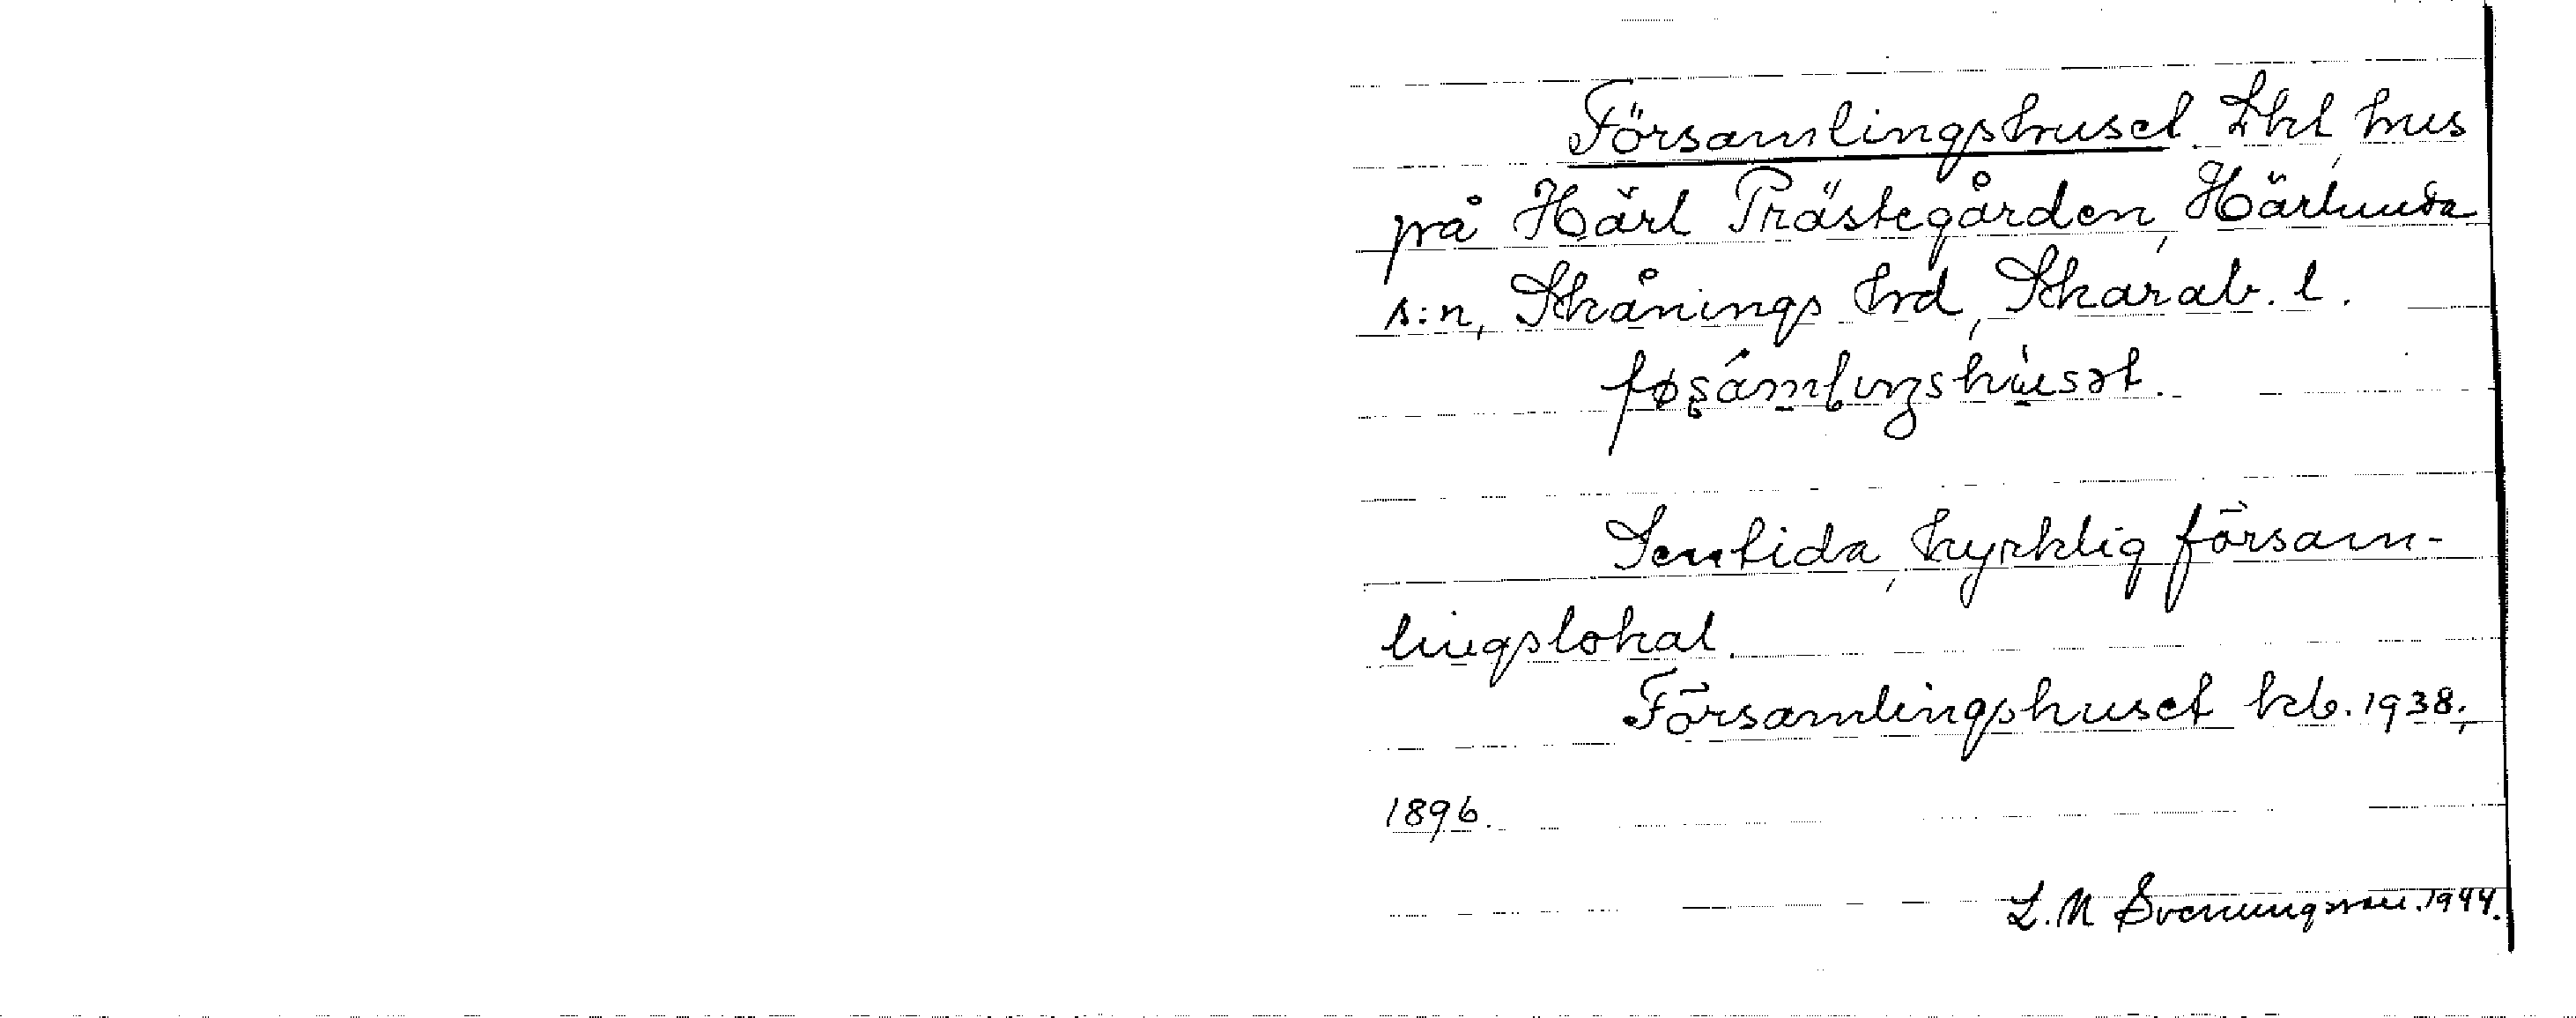 Församlingshuset. Lht, hus
på Härl Prästegården, Härlunda
s:n, Skånings hrd, Skarab. l.
føs̩ámlıŋshùsət.
Sentida, kyrklig försam-
lingslokal.
Församlingshuset kb. 1938;
1896.
L. M Svenungsson. 1944.